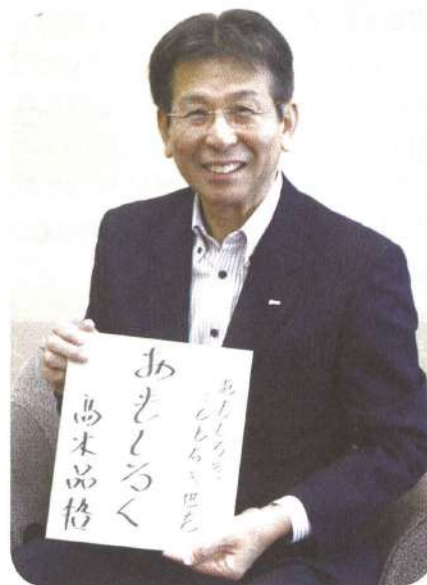 おもしろき
こともなき世を
おもしろく
高木